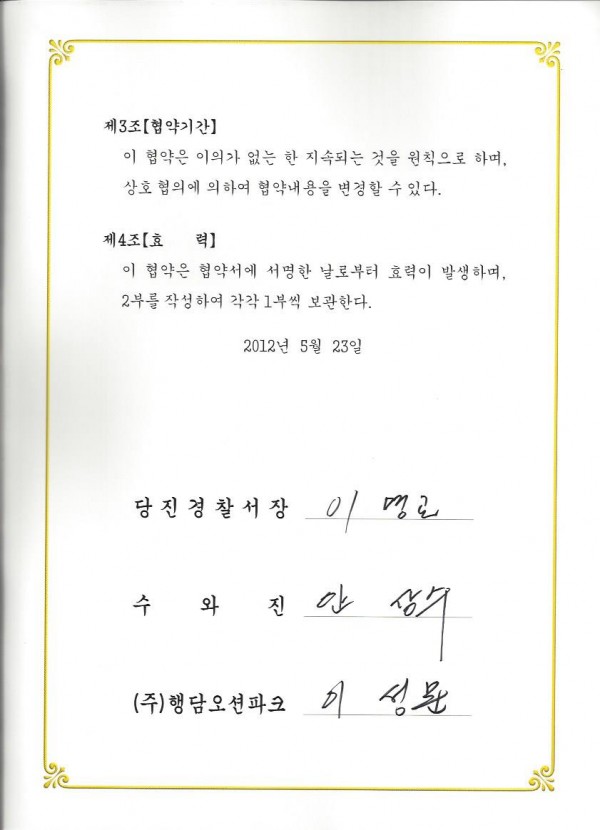 제3조【협약기간】
이 협약은 이의가 없는 한 지속되는 것을 원칙으로 하며,
상호 협의에 의하여 협약내용을 변경할 수 있다.
제4조【효 력】
이 협약은 협약서에 서명한 날로부터 효력이 발생하며,
2부를 작성하여 각각 1부씩 보관한다.
2012년 5월 23일
당진경찰서장 이 명교
수 와 진 안 상수
(주)행담오션파크 이 성문